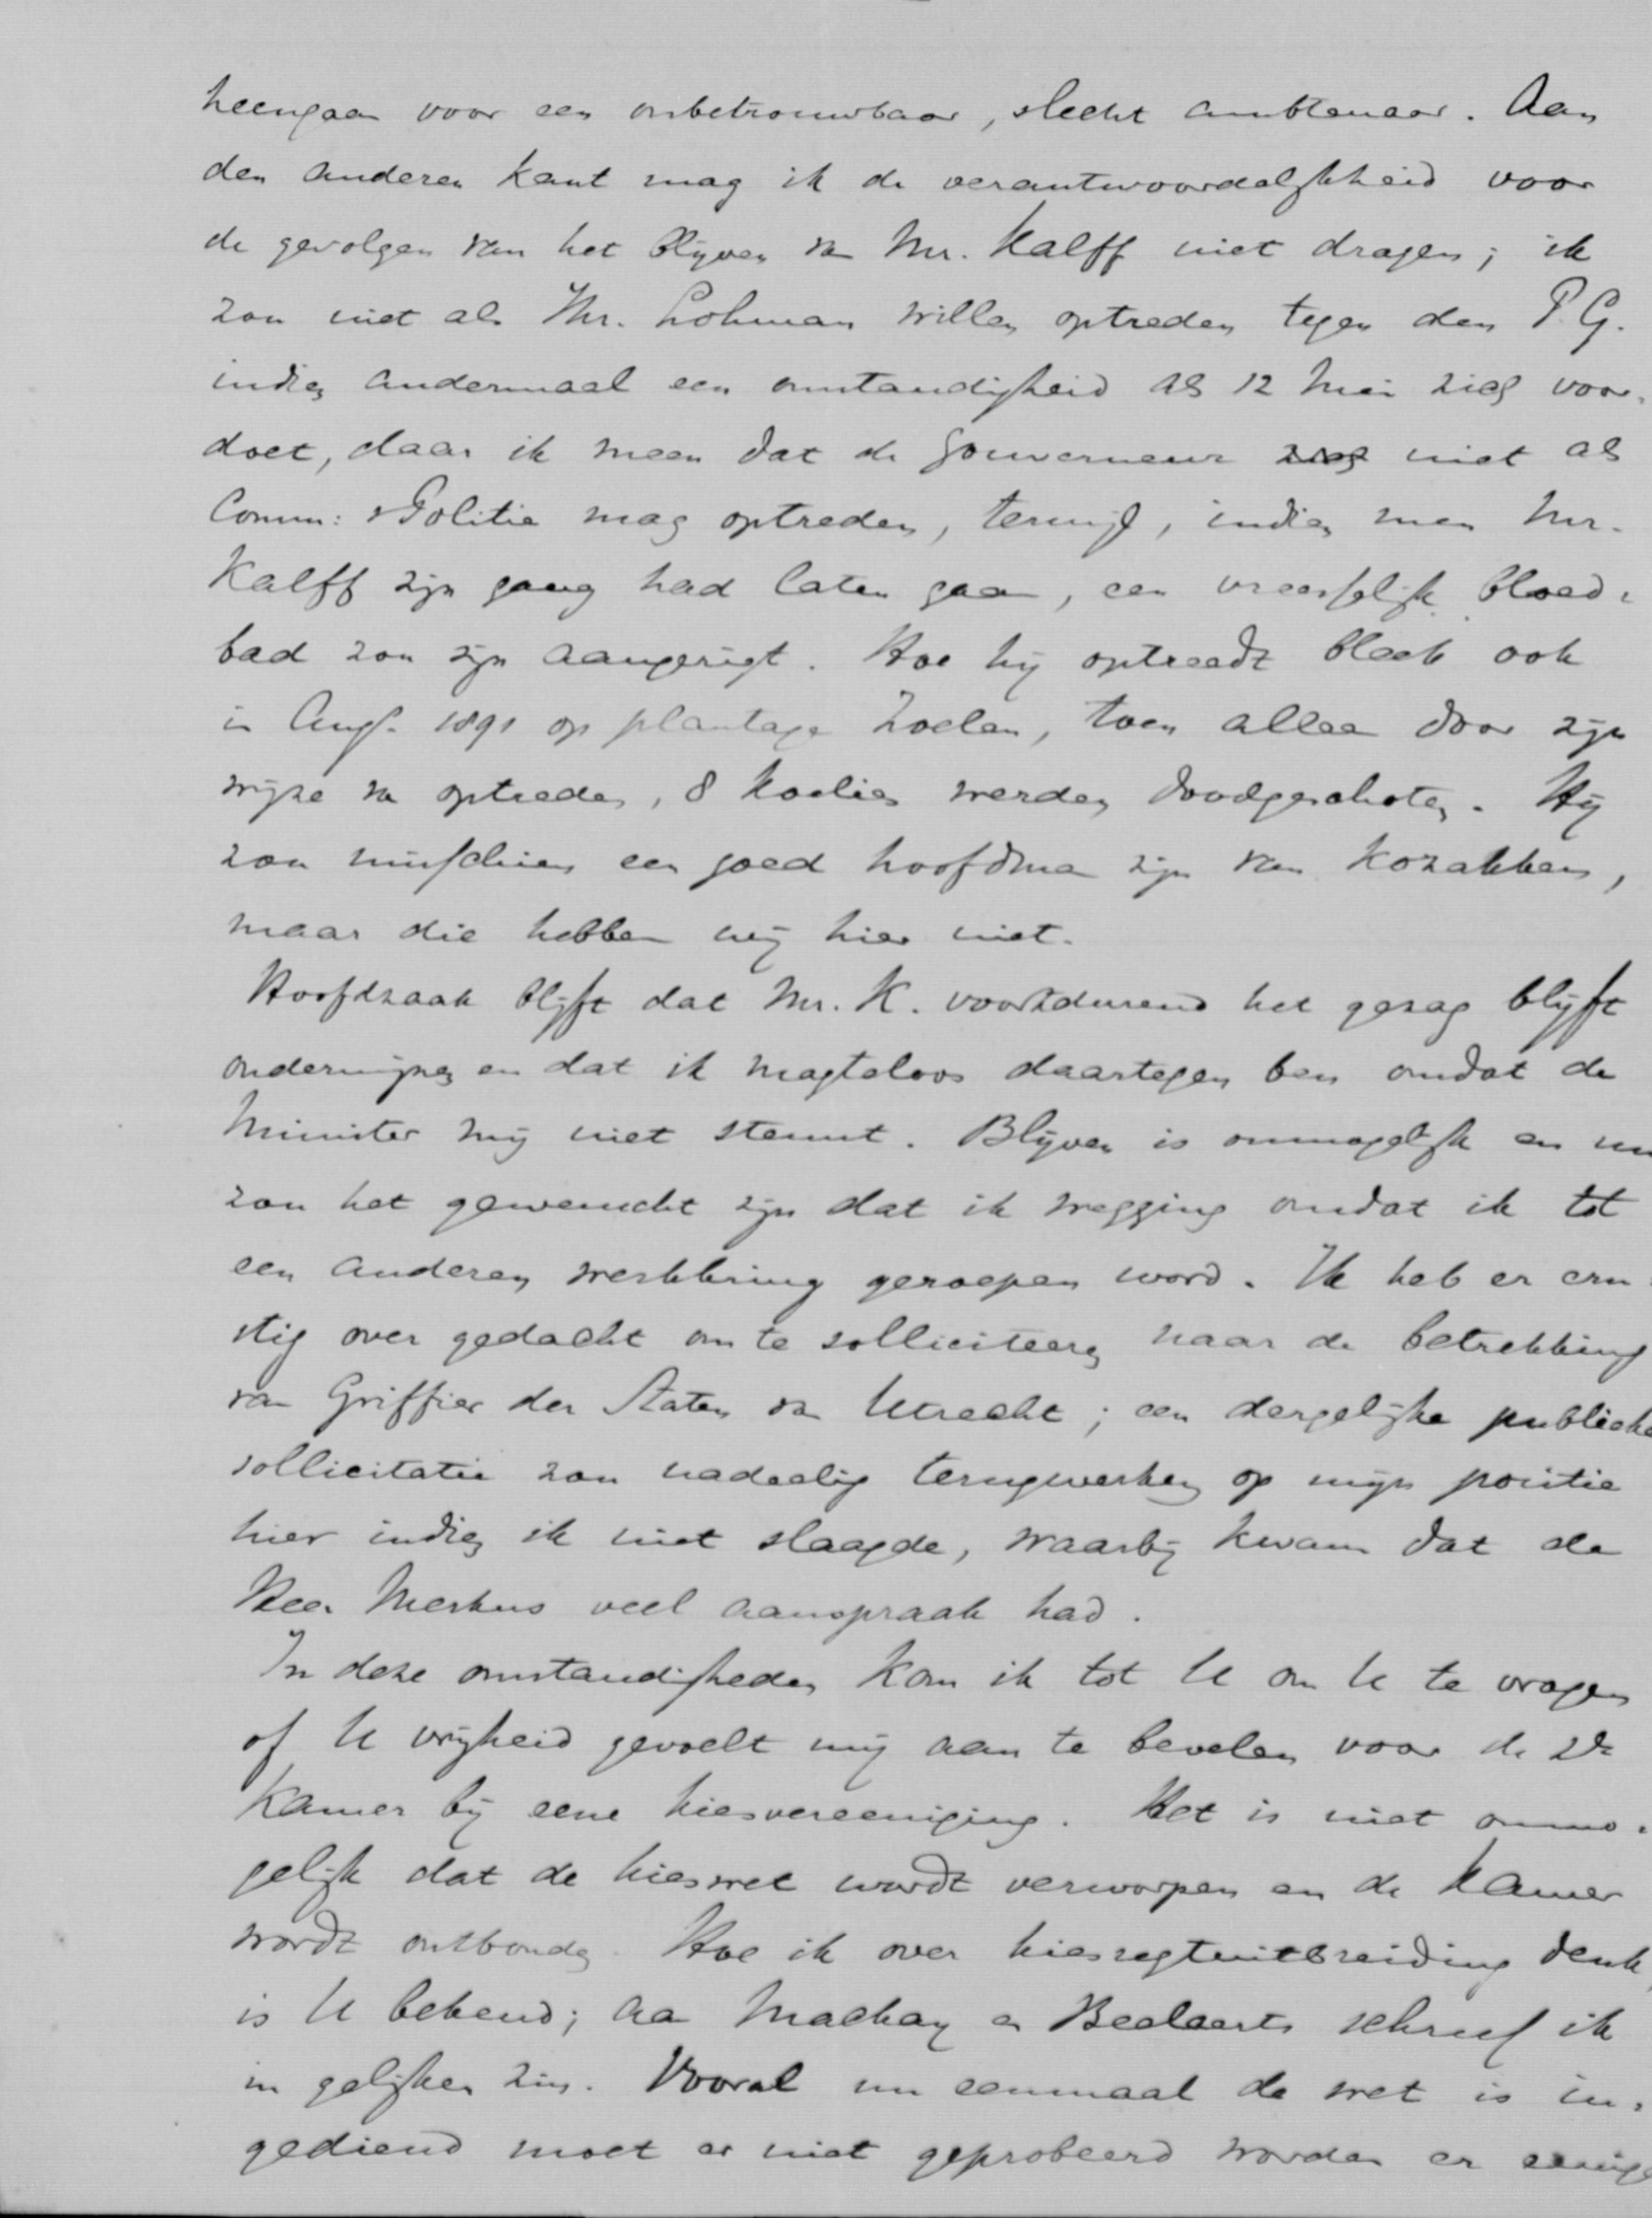 heengaan voor een onbetrouwbaar, slecht ambtenaar. Aan
den anderen kant mag ik de verantwoordelijkheid voor
de gevolgen van het blijven van Mr. Kalff niet dragen; ik
zou niet als Mr. Lohman willen optreden tegen den P.G.
indien andermaal een omstandigheid als 12 Mei zich voor-
doet, daar ik meen dat de Gouverneur niet als
Comm: v Politie mag optreden, terwijl, indien men Mr.
Kalff zijn gang had laten gaan, een vreesselijk bloed-
bad zou zijn aangerigt. Hoe hij optreedt bleek ook
in Aug. 1891 op plantage Zoelen, toen alleen door zijn
wijze van optreden, 8 koelies werden doodgeschoten. Hij
zou misschien een goed hoofdman zijn van Kozakken,
maar die hebben wij hier niet.
Hoofdzaak blijft dat Mr. K. voortdurend het gezag blijft
ondermijnen en dat ik magteloos daartegen ben omdat de
Minister mij niet steunt. Blijven is onmogelijk en nu
zou het gewenscht zijn dat ik wegging omdat ik tot
een anderen werkkring geroepen word. Ik heb er ern-
stig over gedacht om te solliciteeren naar de betrekking
van Griffier der Staten van Utrecht; een dergelijke publieke
sollicitatie zou nadeelig terugwerken op mijn positie
hier indien ik niet slaagde, waarbij kwam dat de
Heer Merkus veel aanspraak had.
In deze omstandigheden kom ik tot U om U te vragen
of U vrijheid gevoelt mij aan te bevelen voor de 2de
Kamer bij eene kiesvereeniging. Het is niet onmo-
gelijk dat de kieswet wordt verworpen en de Kamer
wordt ontbonden. Hoe ik over kiesregtuitbreiding denk,
is U bekend; aan Mackay en Beelaerts schreef ik
in gelijken zin. Vooral nu eenmaal de wet is in-
gediend moet er niet geprobeerd worden er eenige